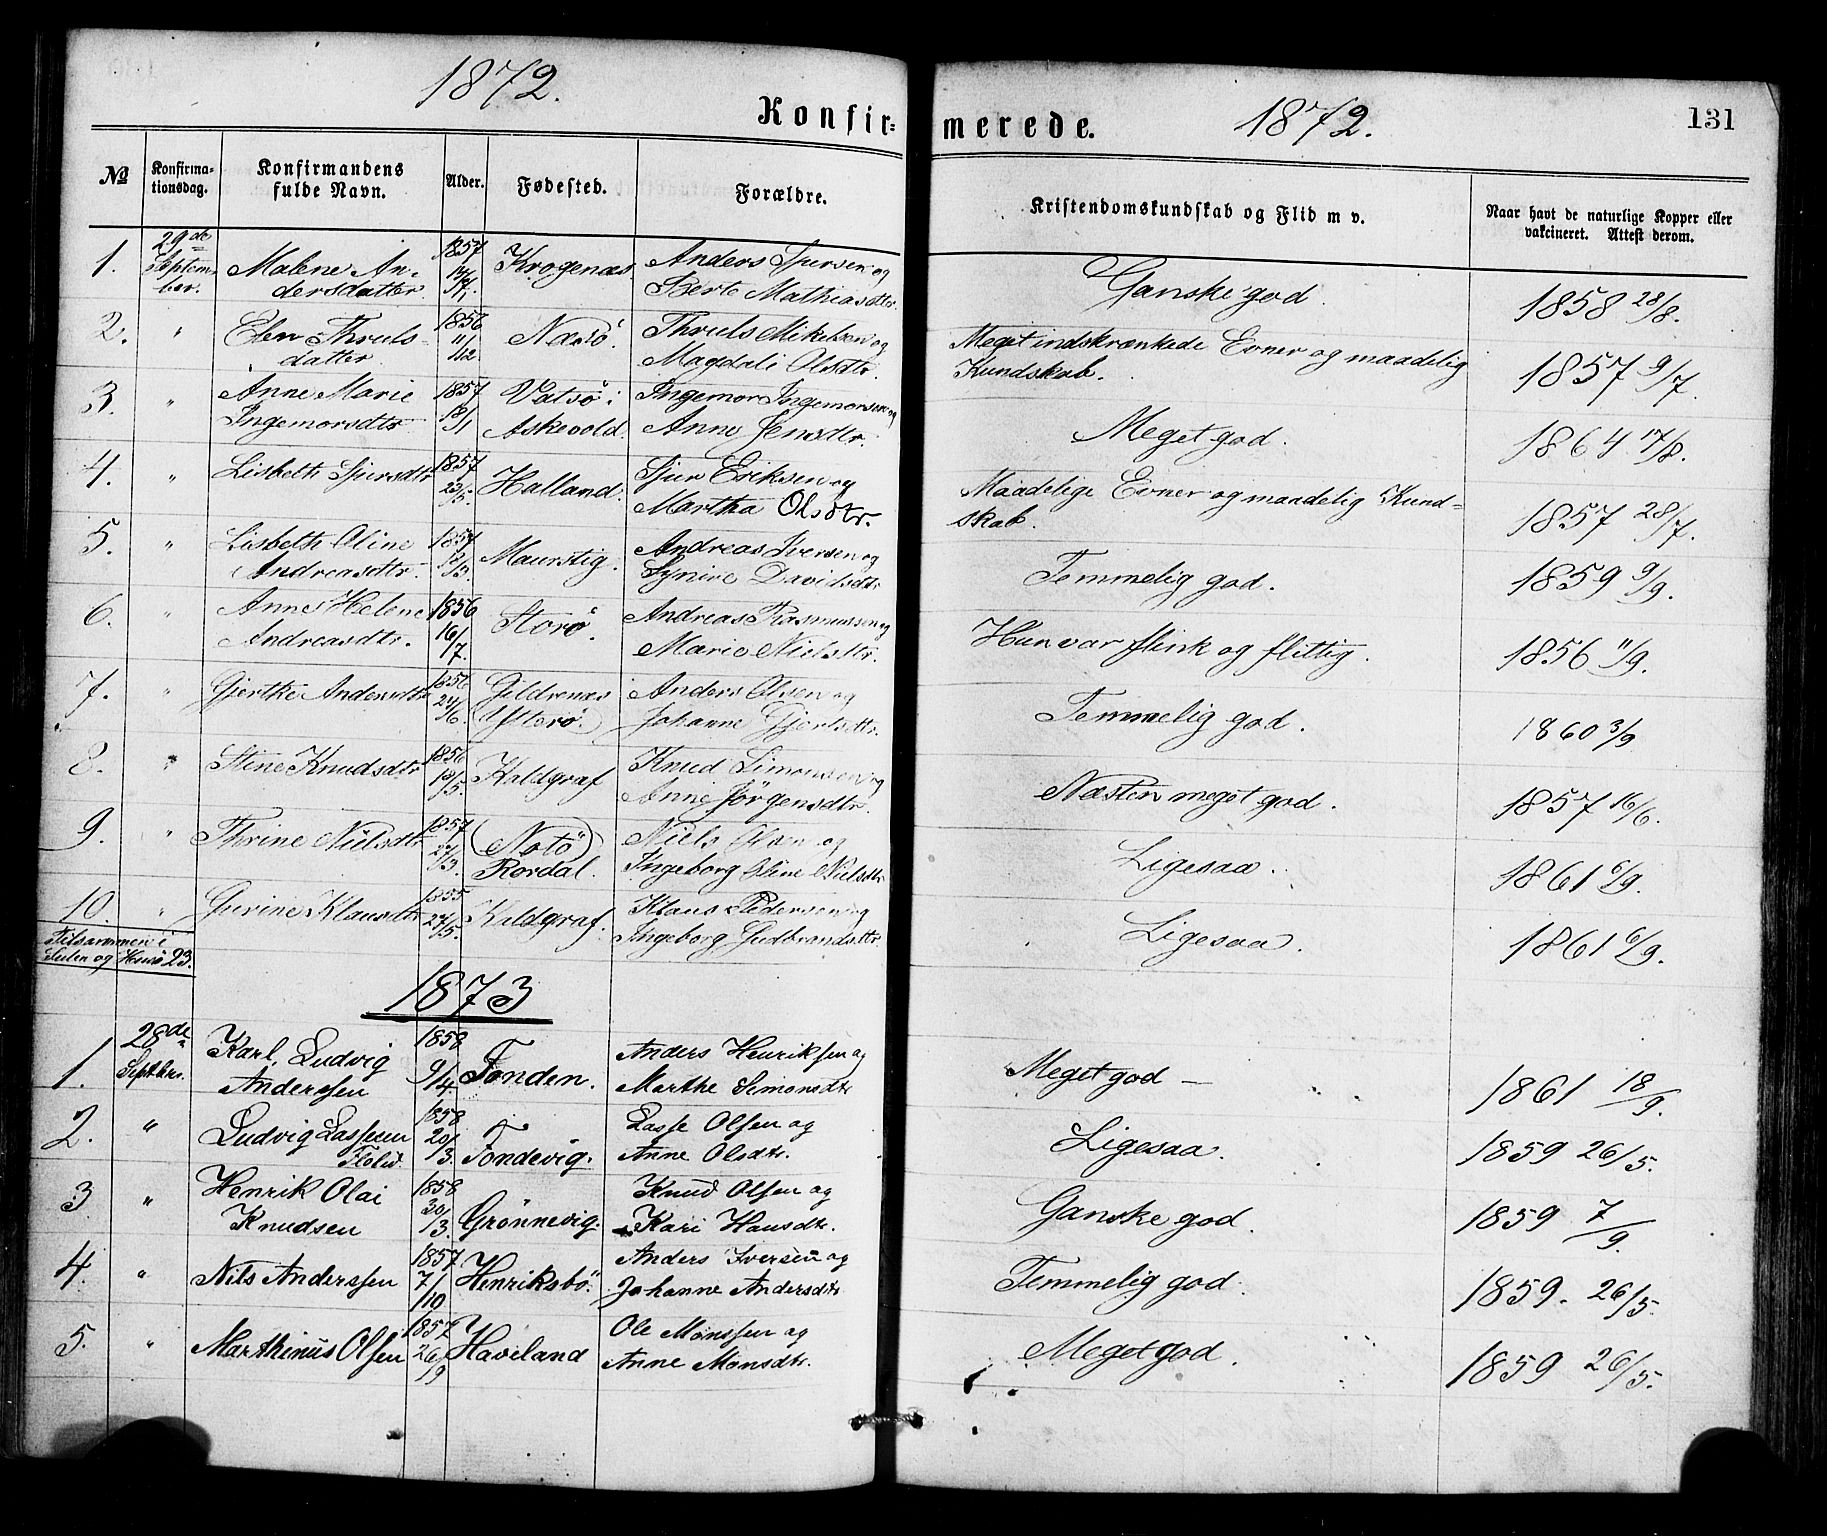 1872.
Konfir=
merede.
1872.
131
№
Konfirma-
tionsdag.
Konfirmandens
fulde Navn.
Alder.
Fødested.
Forældre.
Kristendomskundskab og Flid m v.
Naar havt de naturlige Kopper eller
vakcineret. Attest derom.
1. 29de Septem- ber. Malene An- dersdatter 1857 Krogenæs Anders Sjursen og Berte Mathiasdtr. Ganske god. 1858 28/8.
2. " Elen Thruls- datter 1856 11/12 Næsö. Thruls Mikelsen og Magdeli Olsdtr. Meget indskrænkede Evner og maadelig Kundskab. 1857 9/7.
3. " Anne Marie Ingemorsdtr 1857 18/1 Vatsö i Askevold. Ingemor Ingemorsen og Anne Jensdtr. Meget god. 1864 17/8.
4. " Lisbeth Sjursdtr 1857 23/5. Halland. Sjur Eriksen og Martha Olsdtr. Maadelige Evner og maadelig Kund= skab. 1857 28/7.
5. " Lisbeth Oline Andreasdtr. 1857 12/3. Maurstig. Andreas Iversen og Synive Davidsdtr Temmelig god. 1859 9/9.
6. " Anne Helene Andreasdtr. 1856 16/7. Storö. Andreas Rasmussen og Marie Nielsdtr. Hun var flink og flittig. 1856 11/9.
7. " Gjertke Andersdtr 1856 24/6. Gildrenæs (Ytterö.) Anders Olsen og Johanne Gjertsdtr. Temmelig god. 1860 3/9
8. " Stine Knudsdtr 1856 19/5. Kaldgraf Knud Simonsen og Anne Jörgensdtr. Næsten meget god. 1857 16/6.
9. " Thrine Nielsdtr 1857 27/3. (Notö) Rordal. Niels Olsen og Ingeborg Oline Nielsdtr Ligesaa. 1861 6/9.
10. " Gurine Klausdtr 1855 27/5. Kaldgraf. Klaus Pedersen og Ingeborg Gudbrandsdtr. Ligesaa. 1861 6/9.
Tilsammen i
og Husö 23.
1873
1. 28de Septbr. Karl Ludvig Anderssen 1858 9/4. Tonden. Anders Henriksen og Marthe Simonsdtr Meget god — 1861 18/9.
2. " Ludvig Lassesen 1858 20/3. Tondevig. Lasse Olsen og Anne Olsdtr. Ligesaa. 1859 26/5.
3 " Henrik Olai Knudsen 1858 30/3. Grönnevig. Knud Olsen og Kari Hansdtr. Ganske god. 1859 7/9.
4. " Nils Anderssen 1857 7/10 Henriksbö. Anders Iversen og Johanne Andersdtr Temmelig god. 1859. 26/5.
5. " Marthinus Olsen 1857 26/9 Haveland Ole Monssen og Anne Monsdtr. Meget god. 1859 26/5.